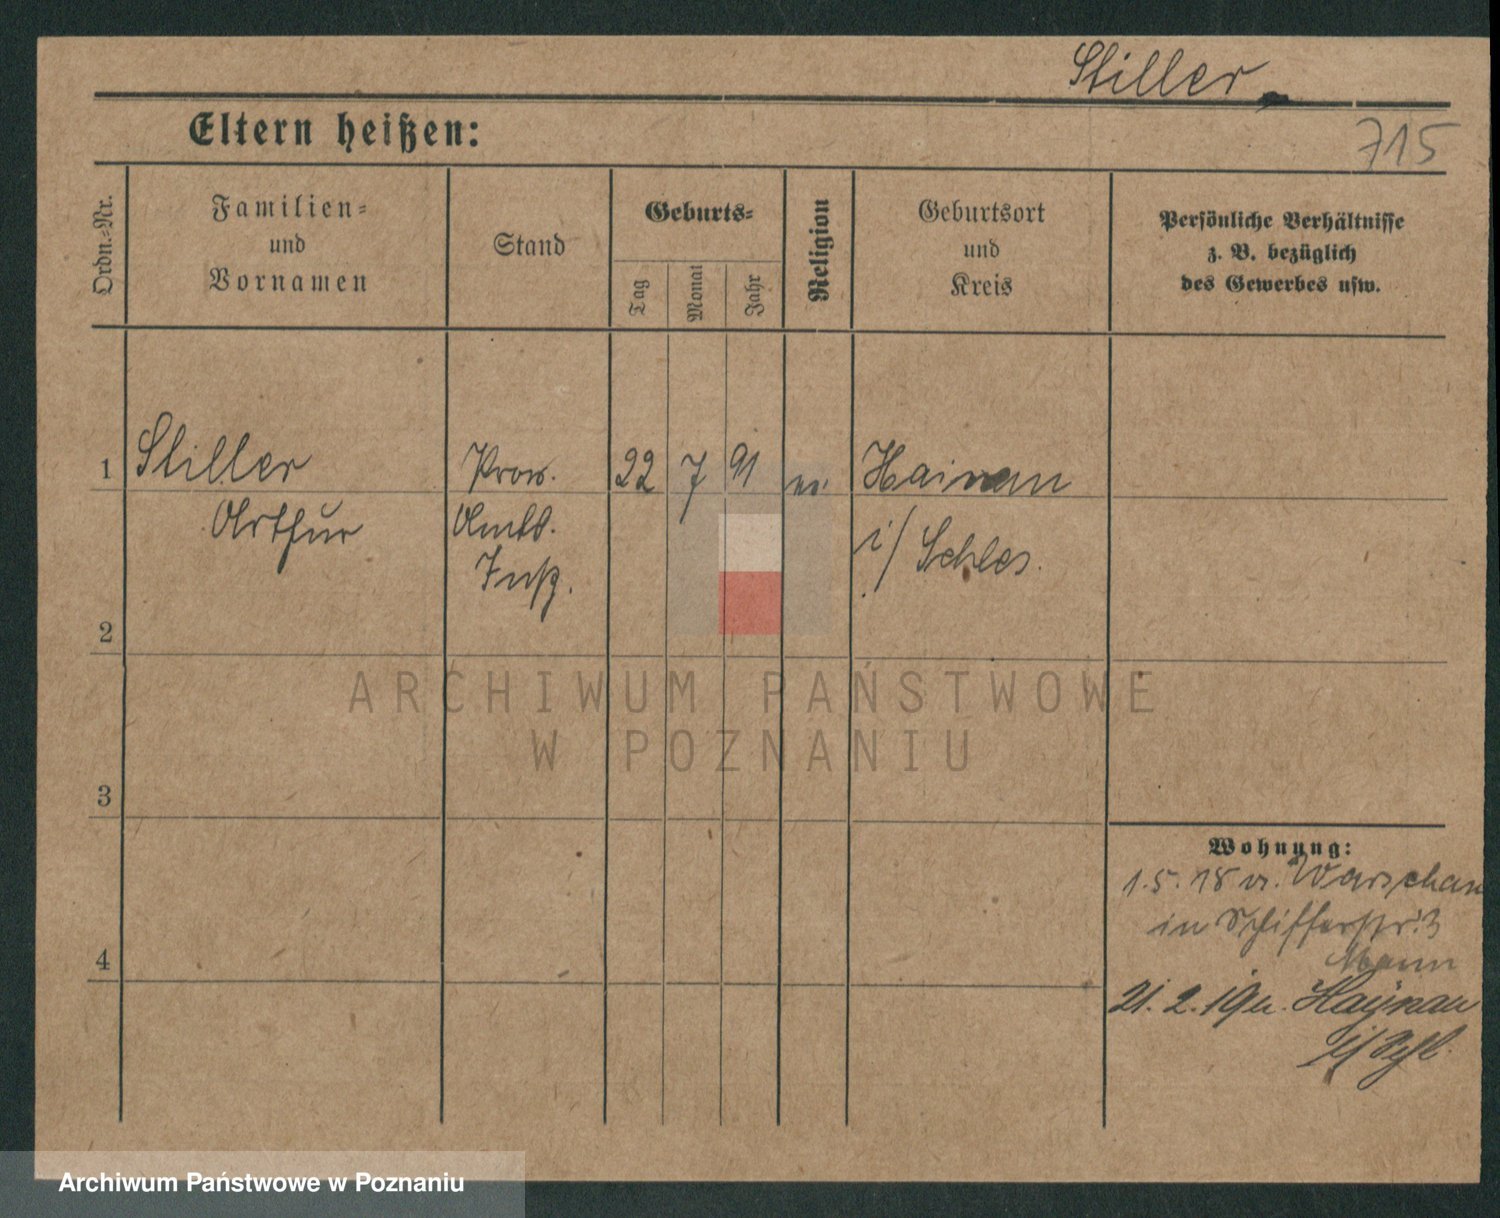 Stiller
715
Eltern heißen:
Ordn.-Nr.
Familien-
und
Vornamen
Stand
Geburts-
Tag
Monat
Jahr
Religion
Geburtsort
und
Kreis
Persönliche Verhältnisse
z. B. bezüglich
des Gewerbes usw.
1 Stiller Prov. 22 7 91 ev. Hainau
Arthur Amts. i/ Schles.
Insp.
2
3
4
Wohnung:
1.5.18 v. Warschau
in Schifferstr. 3
Mann
21.2.19 n. Haynau
i/ Schl.
ARCHIWUM PAŃSTWOWE
W POZNANIU
Archiwum Państwowe w Poznaniu